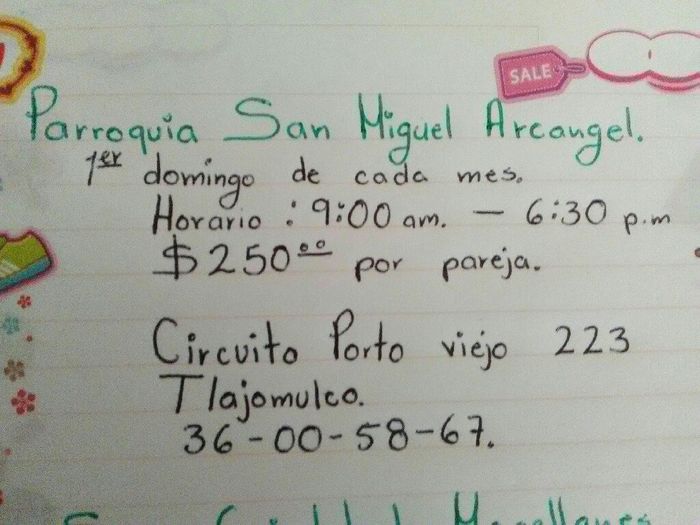 SALE
Parroquia San Miguel Arcangel.
1er domingo de cada mes.
Horario : 9:00 am. — 6:30 p.m
$250.00 por pareja.
Circuito Porto viejo 223
Tlajomulco.
36-00-58-67.